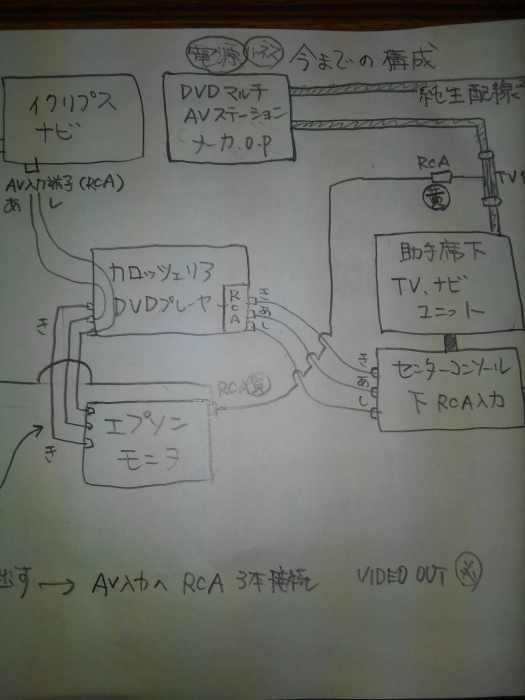 電源 ハーネス 今までの構成
イクリプス
ナビ
DVDマルチ
AVステーション
メーカ.O.P
純正配線
AV入力端子(RCA)
あ し
RCA
黄
TV
カロッツェリア
DVDプレーヤ
RCA
き
あ
し
助手席下
TV.ナビ
ユニット
き
RCA 黄
き
あ
し
センターコンソール
下 RCA入力
エプソン
モニタ
き
出す → AV入力へ RCA 3本接続 VIDEO OUT